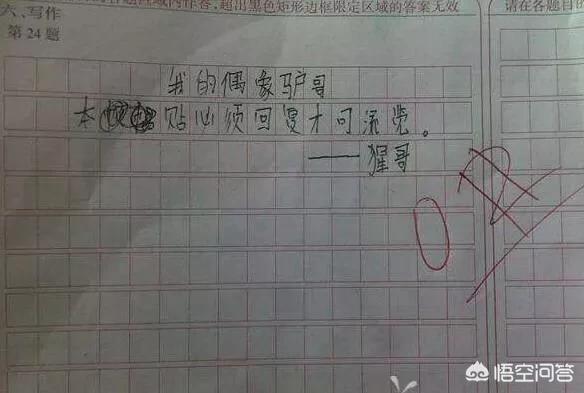 超出黑色矩形边框限定区域的答案无效
请在各题目的
六、写作
第24题
我的偶象驴哥
本贴必须回复才可流览。
——猩哥
0
悟空问答